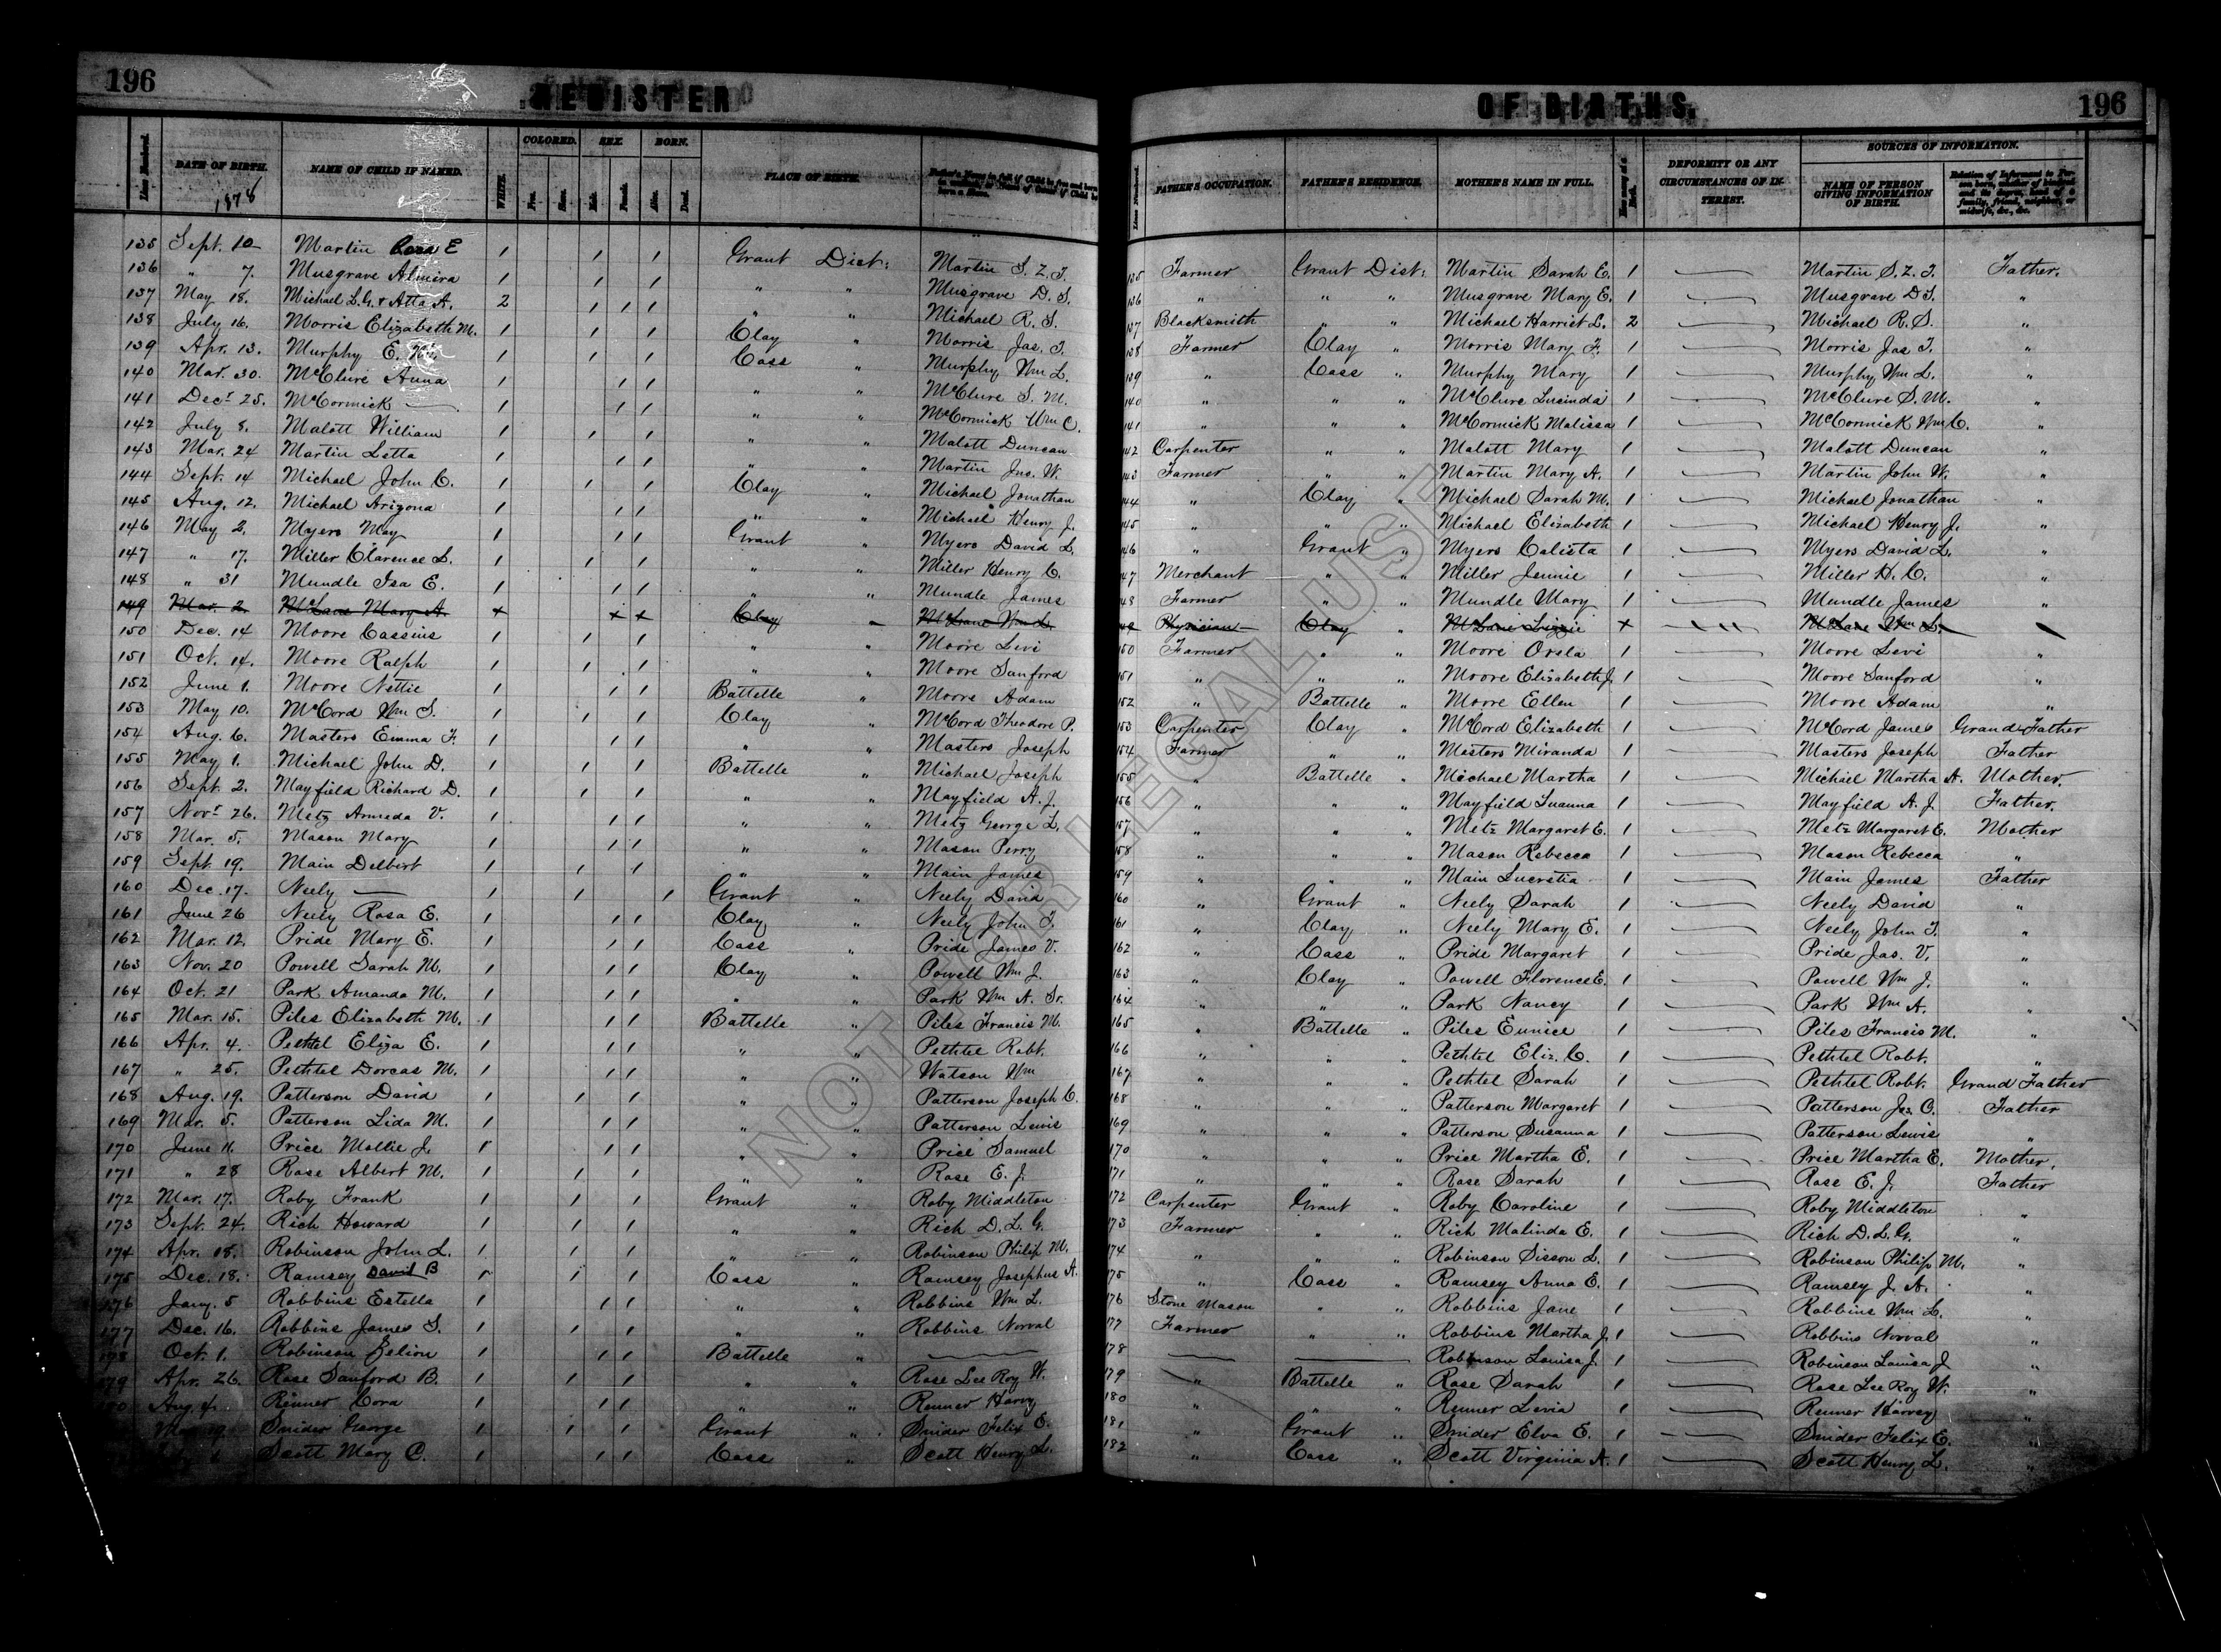 196
REGISTER
OF BIRTHS.
196
Line Numbered.
DATE OF BIRTH.
1878
NAME OF CHILD IF NAMED.
WHITE.
COLORED.
Free.
Slave.
SEX.
Male.
Female.
BORN.
Alive.
Dead.
PLACE OF BIRTH.
Father's Name in full if Child be free and born
in wedlock, or Name of Owner if Child be
born a Slave.
Lines Numbered.
FATHER'S OCCUPATION.
FATHER'S RESIDENCE.
MOTHER'S NAME IN FULL.
How many at a Birth.
DEFORMITY OR ANY
CIRCUMSTANCES OF IN-
TEREST.
SOURCES OF INFORMATION.
NAME OF PERSON
GIVING INFORMATION
OF BIRTH.
Relation of Informant to Per-
son born, whether of husband
and its degree, head of a
family, friend, neighbor, or
midwife, &c., &c.
135 Sept. 10 Martin Cora E 1 1 1 Grant Dist: Martin S. Z. T. 135 Farmer Grant Dist: Martin Sarah E. 1 Martin S. Z. T. Father.
136 " 7. Musgrave Almira 1 1 1 " " Musgrave D. S. 136 " " " Musgrave Mary E. 1 Musgrave D S. "
137 May 18. Michael L.G. & Atta A. 2 1 1 1 " " Michael R. S. 137 Blacksmith " " Michael Harriet L. 2 Michael R. S. "
138 July 16. Morris Elizabeth M. 1 1 1 Clay " Morris Jas. T. 138 Farmer Clay " Morris Mary F. 1 Morris Jas T. "
139 Apr. 13. Murphy E. 1 1 1 Cass " Murphy Wm L. 139 " Cass " Murphy Mary 1 Murphy Wm L. "
140 Mar. 30. McClure Anna 1 1 1 " " McClure S. M. 140 " " " McClure Lucinda 1 McClure S. M. "
141 Decr 25. McCormick — 1 1 1 " " McCormick Wm C. 141 " " " McCormick Malissa 1 McCormick Wm C. "
142 July 8. Malott William 1 1 1 " " Malott Duncan 142 Carpenter " " Malott Mary 1 Malott Duncan "
143 Mar. 24 Martin Letta 1 1 1 " " Martin Jno. W. 143 Farmer " " Martin Mary A. 1 Martin John W. "
144 Sept. 14 Michael John C. 1 1 1 Clay " Michael Jonathan 144 " Clay " Michael Sarah M. 1 Michael Jonathan "
145 Aug. 12. Michael Arizona 1 1 1 " " Michael Henry J. 145 " " " Michael Elizabeth 1 Michael Henry J. "
146 May 2. Myers May 1 1 1 Grant " Myers David L. 146 " Grant " Myers Calista 1 Myers David L. "
147 " 17. Miller Clarence L. 1 1 1 " " Miller Henry C. 147 Merchant " " Miller Jennie 1 Miller H. C. "
148 " 31 Mundle Isa E. 1 1 1 " " Mundle James 148 Farmer " " Mundle Mary 1 Mundle James "
149 Mar. 2. McLane Mary A. x x x Clay " McLane Wm L. 149 Physician Clay " McLane Lizzie x " McLane Wm L.
150 Dec. 14 Moore Cassius 1 1 1 " " Moore Levi 150 Farmer " " Moore Orsla 1 Moore Levi "
151 Oct. 14. Moore Ralph 1 1 1 " " Moore Sanford 151 " " " Moore Elizabeth J. 1 Moore Sanford "
152 June 1. Moore Nettie 1 1 1 Battelle " Moore Adam 152 " Battelle " Moore Ellen 1 Moore Adam "
153 May 10. McCord Wm S. 1 1 1 Clay " McCord Theodore P. 153 Carpenter Clay " McCord Elizabeth 1 McCord James Grand Father
154 Aug. 6. Masters Emma F. 1 1 1 " " Masters Joseph 154 Farmer " " Masters Miranda 1 Masters Joseph Father
155 May 1. Michael John D. 1 1 1 Battelle " Michael Joseph 155 " Battelle " Michael Martha 1 Michael Martha A. Mother.
156 Sept. 2. Mayfield Richard D. 1 1 1 " " Mayfield A. J. 156 " " " Mayfield Luanna 1 Mayfield A. J. Father.
157 Novr 26. Metz Armada V. 1 1 1 " " Metz George L. 157 " " " Metz Margaret E. 1 Metz Margaret E. Mother
158 Mar. 5. Mason Mary 1 1 1 " " Mason Perry 158 " " " Mason Rebecca 1 Mason Rebecca "
159 Sept. 19. Main Delbert 1 1 1 " " Main James 159 " " " Main Lucretia 1 Main James Father
160 Dec. 17. Neely — 1 1 1 Grant " Neely David 160 " Grant " Neely Sarah 1 Neely David "
161 June 26 Neely Rosa E. 1 1 1 Clay " Neely John T. 161 " Clay " Neely Mary E. 1 Neely John T. "
162 Mar. 12. Pride Mary E. 1 1 1 Cass " Pride James V. 162 " Cass " Pride Margaret 1 Pride Jas. V. "
163 Nov. 20 Powell Sarah M. 1 1 1 Clay " Powell Wm J. 163 " Clay " Powell Florence E. 1 Powell Wm J. "
164 Oct. 21 Park Amanda M. 1 1 1 " " Park Wm A. Sr. 164 " " " Park Nancy 1 Park Wm A. "
165 Mar. 15. Piles Elizabeth M. 1 1 1 Battelle " Piles Francis M. 165 " Battelle " Piles Eunice 1 Piles Francis M. "
166 Apr. 4. Pethtel Eliza E. 1 1 1 " " Pethtel Robt. 166 " " " Pethtel Eliz. C. 1 Pethtel Robt. "
167 " 25. Pethtel Dorcas M. 1 1 1 " " Watson Wm 167 " " " Pethtel Sarah 1 Pethtel Robt. Grand Father
168 Aug. 19. Patterson David 1 1 1 " " Patterson Joseph C. 168 " " " Patterson Margaret 1 Patterson Jos. C. Father
169 Mar. 5. Patterson Lida M. 1 1 1 " " Patterson Lewis 169 " " " Patterson Susanna 1 Patterson Lewis "
170 June 11. Price Mollie J. 1 1 1 " " Price Samuel 170 " " " Price Martha E. 1 Price Martha E. Mother.
171 " 28 Rose Albert M. 1 1 1 " " Rose E. J. 171 " " " Rose Sarah 1 Rose E. J. Father
172 Mar. 17. Roby Frank 1 1 1 Grant " Roby Middleton 172 Carpenter Grant " Roby Caroline 1 Roby Middleton "
173 Sept. 24. Rich Howard 1 1 1 " " Rich D. L. G. 173 Farmer " " Rich Malinda E. 1 Rich D. L. G. "
174 Apr. 18. Robinson John L. 1 1 1 " " Robinson Philip M. 174 " " " Robinson Sisson L. 1 Robinson Philip M. "
175 Dec. 18. Ramsey David B 1 1 1 Cass " Ramsey Josephus A. 175 " Cass " Ramsey Anna E. 1 Ramsey J. A. "
176 Jany. 5 Robbins Estella 1 1 1 " " Robbins Wm L. 176 Stone Mason " " Robbins Jane 1 Robbins Wm L. "
177 Dec. 16. Robbins James S. 1 1 1 " " Robbins Norval 177 Farmer " " Robbins Martha J. 1 Robbins Norval "
178 Oct. 1. Robinson Zelion 1 1 1 Battelle " — 178 — — Robinson Louisa J. 1 Robinson Louisa J "
179 Apr. 26. Rose Sanford B. 1 1 1 " " Rose Lee Roy W. 179 " Battelle " Rose Sarah 1 Rose Lee Roy W. "
180 Aug. 4. Renner Cora 1 1 1 " " Renner Harvy 180 " " " Renner Levia 1 Renner Harvey "
Snider George 1 1 1 Grant " Snider Felix E. 181 " Grant " Snider Elva E. 1 Snider Felix E. "
Scott Mary C. 1 1 1 Cass " Scott Henry L. 182 " Cass " Scott Virginia A. 1 Scott Henry L. "
NOT FOR LEGAL USE